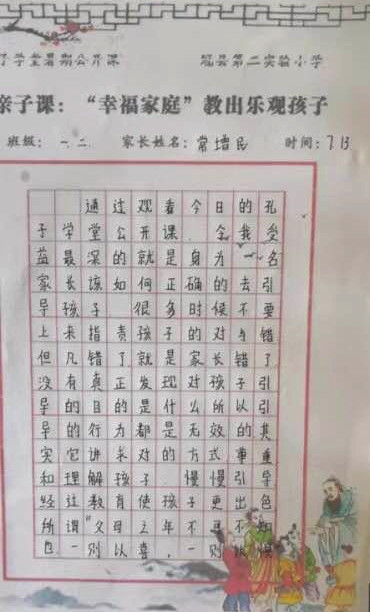 学堂暑期公开课 冠县第二实验小学
亲子课：“幸福家庭”教出乐观孩子
班级：一.二. 家长姓名：常增民 时间：7.13
通过观看今日的孔
子学堂公开课.令我受
益最深的就是身为一名
家长该如何正确的去引
导孩子 很多时候不要
上来指责孩子的对与错
但凡错了就是家长错了
没有真正发现对孩子引
导的目的是什么所以引
导的行为都是无效的其
实它讲求对的方式尊重
和理解孩子 慢慢引导
经过教育使孩子更出色
所谓“父母之年不可不知
也.一则以喜,一则以惧